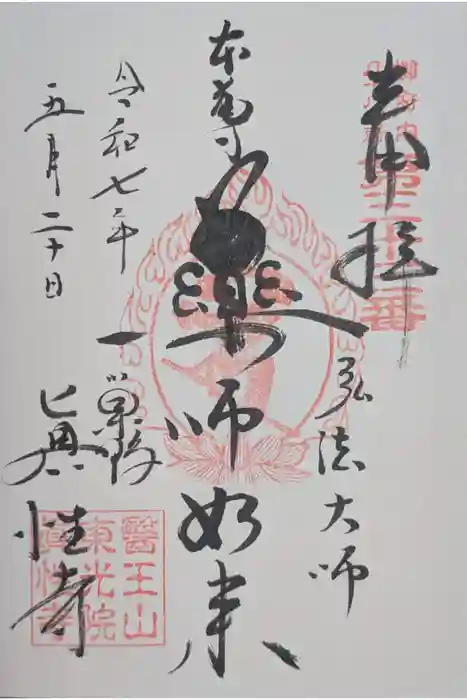 奉拝
弘法大師
本尊
薬師如来
令和七年
五月二十日
真性寺
醫王山
東光院
真性寺